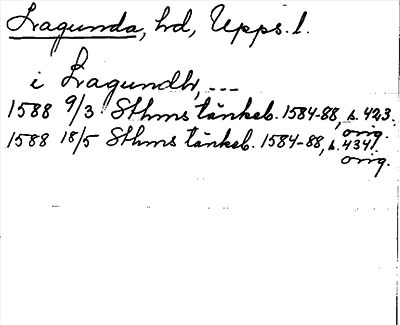 Lagunda, hd, Upps. l.
i Lagundh, ---
1588 9/3 Sthms tänkeb. 1584-88, s. 423.
orig.
1588 18/5 Sthms tänkeb. 1584-88, s. 434.
orig.